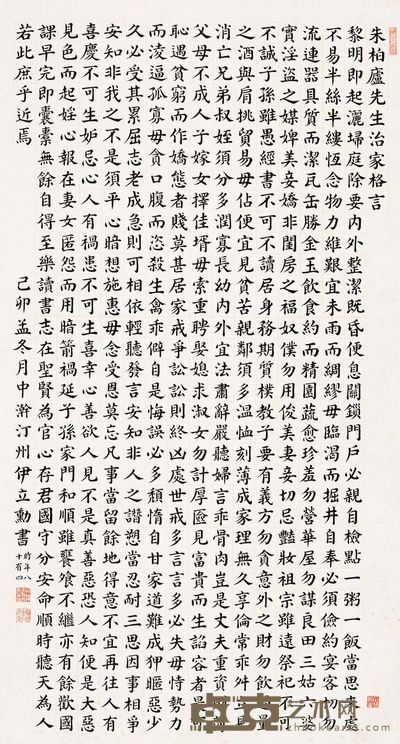 朱柏廬先生治家格言
黎明即起灑埽庭除要內外整潔既昏便息關鎖門戶必親自檢點一粥一飯當思來處
不易半絲半縷恆念物力維艱宜未雨而綢繆毋臨渴而掘井自奉必須儉約宴客切勿
流連器具質而潔瓦缶勝金玉飲食約而精園蔬愈珍羞勿營華屋勿謀良田三姑六婆
實淫盜之媒婢美妾嬌非閨房之福奴僕勿用俊美妻妾切忌豔妝祖宗雖遠祭祀不可
不誠子孫雖愚經書不可不讀居身務期質樸教子要有義方勿貪意外之財勿飲過量
之酒與肩挑貿易毋佔便宜見貧苦親鄰須多溫恤刻薄成家理無久享倫常乖舛立見
消亡兄弟叔姪須分多潤寡長幼內外宜法肅辭嚴聽婦言乖骨肉豈是丈夫重資財薄
父母不成人子嫁女擇佳壻毋索重聘娶媳求淑女勿計厚奩見富貴而生諂容者最可
恥遇貧窮而作驕態者賤莫甚居家戒爭訟訟則終凶處世戒多言言多必失毋恃勢力
而淩逼孤寡毋貪口腹而恣殺生禽乖僻自是悔誤必多頹惰自甘家道難成狎暱惡少
久必受其累屈志老成急則可相依輕聽發言安知非人之譖愬當忍耐三思因事相爭
安知非我之不是須平心暗想施惠毋念受恩莫忘凡事當留餘地得意不宜再往人有
喜慶不可生妒忌心人有禍患不可生喜幸心善欲人見不是真善惡恐人知便是大惡
見色而起婬心報在妻女匿怨而用暗箭禍延子孫家門和順雖饔飧不繼亦有餘歡國
課早完即囊橐無餘自得至樂讀書志在聖賢為官心存君國守分安命順時聽天為人
若此庶乎近焉
己卯孟冬月中澣汀州伊立勳書
時年八
十有四